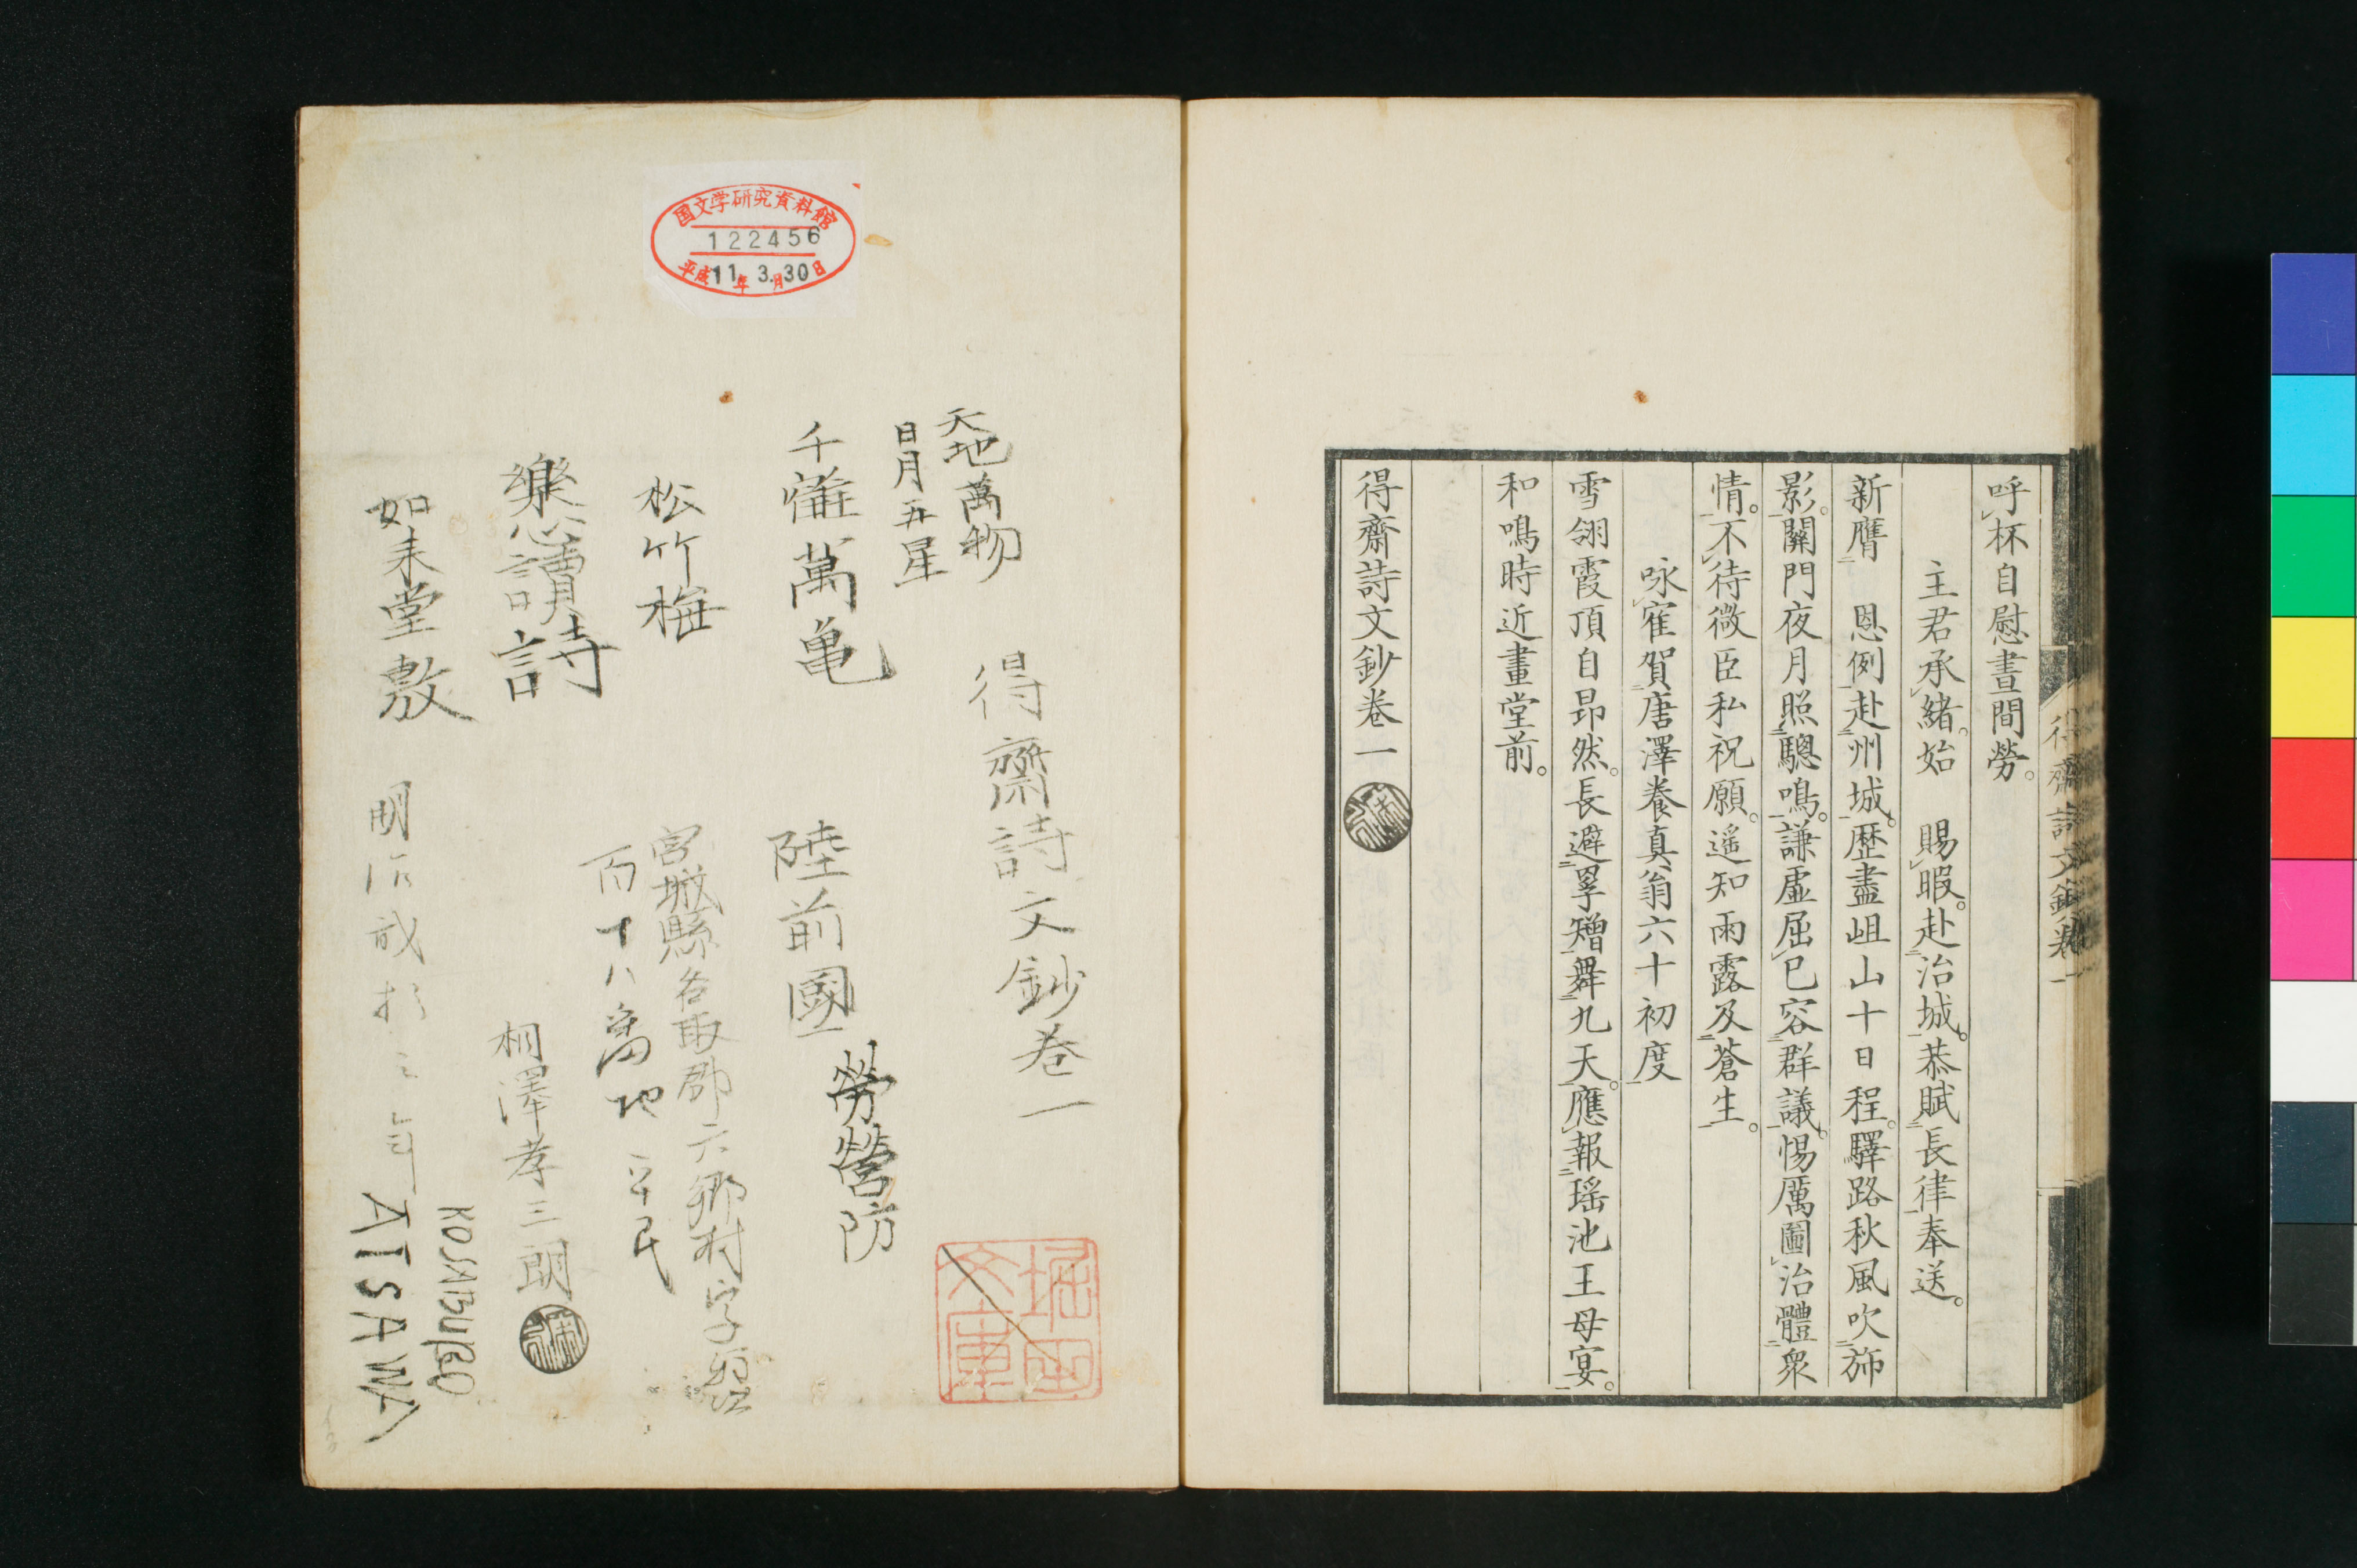 呼杯自慰晝間勞。
主君承緒。始　賜暇。赴治城。恭賦長律奉送。
新膺　恩例赴州城。歷盡岨山十日程。驛路秋風吹斾
影。關門夜月照驄鳴。謙虛屈已容群議。惕厲圖治體衆
情。不待微臣私祝願。遥知雨露及蒼生。
咏寉賀唐澤養真翁六十初度
雪翎霞頂自昻然。長避罣矰舞九天。應報瑶池王母宴。
和鳴時近畫堂前。
得齋詩文鈔卷一
得齋詩文鈔卷一
国文学研究資料館
122456
平成11年3月30日
天地萬物
日月五星
得齋詩文鈔卷一
堀田文庫
千萬亀
陸前國
勞營防
松竹梅
宮城縣名取郡六郷村字
百十八番地 平民
讀詩
桐澤孝三朗
如来堂敷
明治 三年
KOSABURO
AISAWA